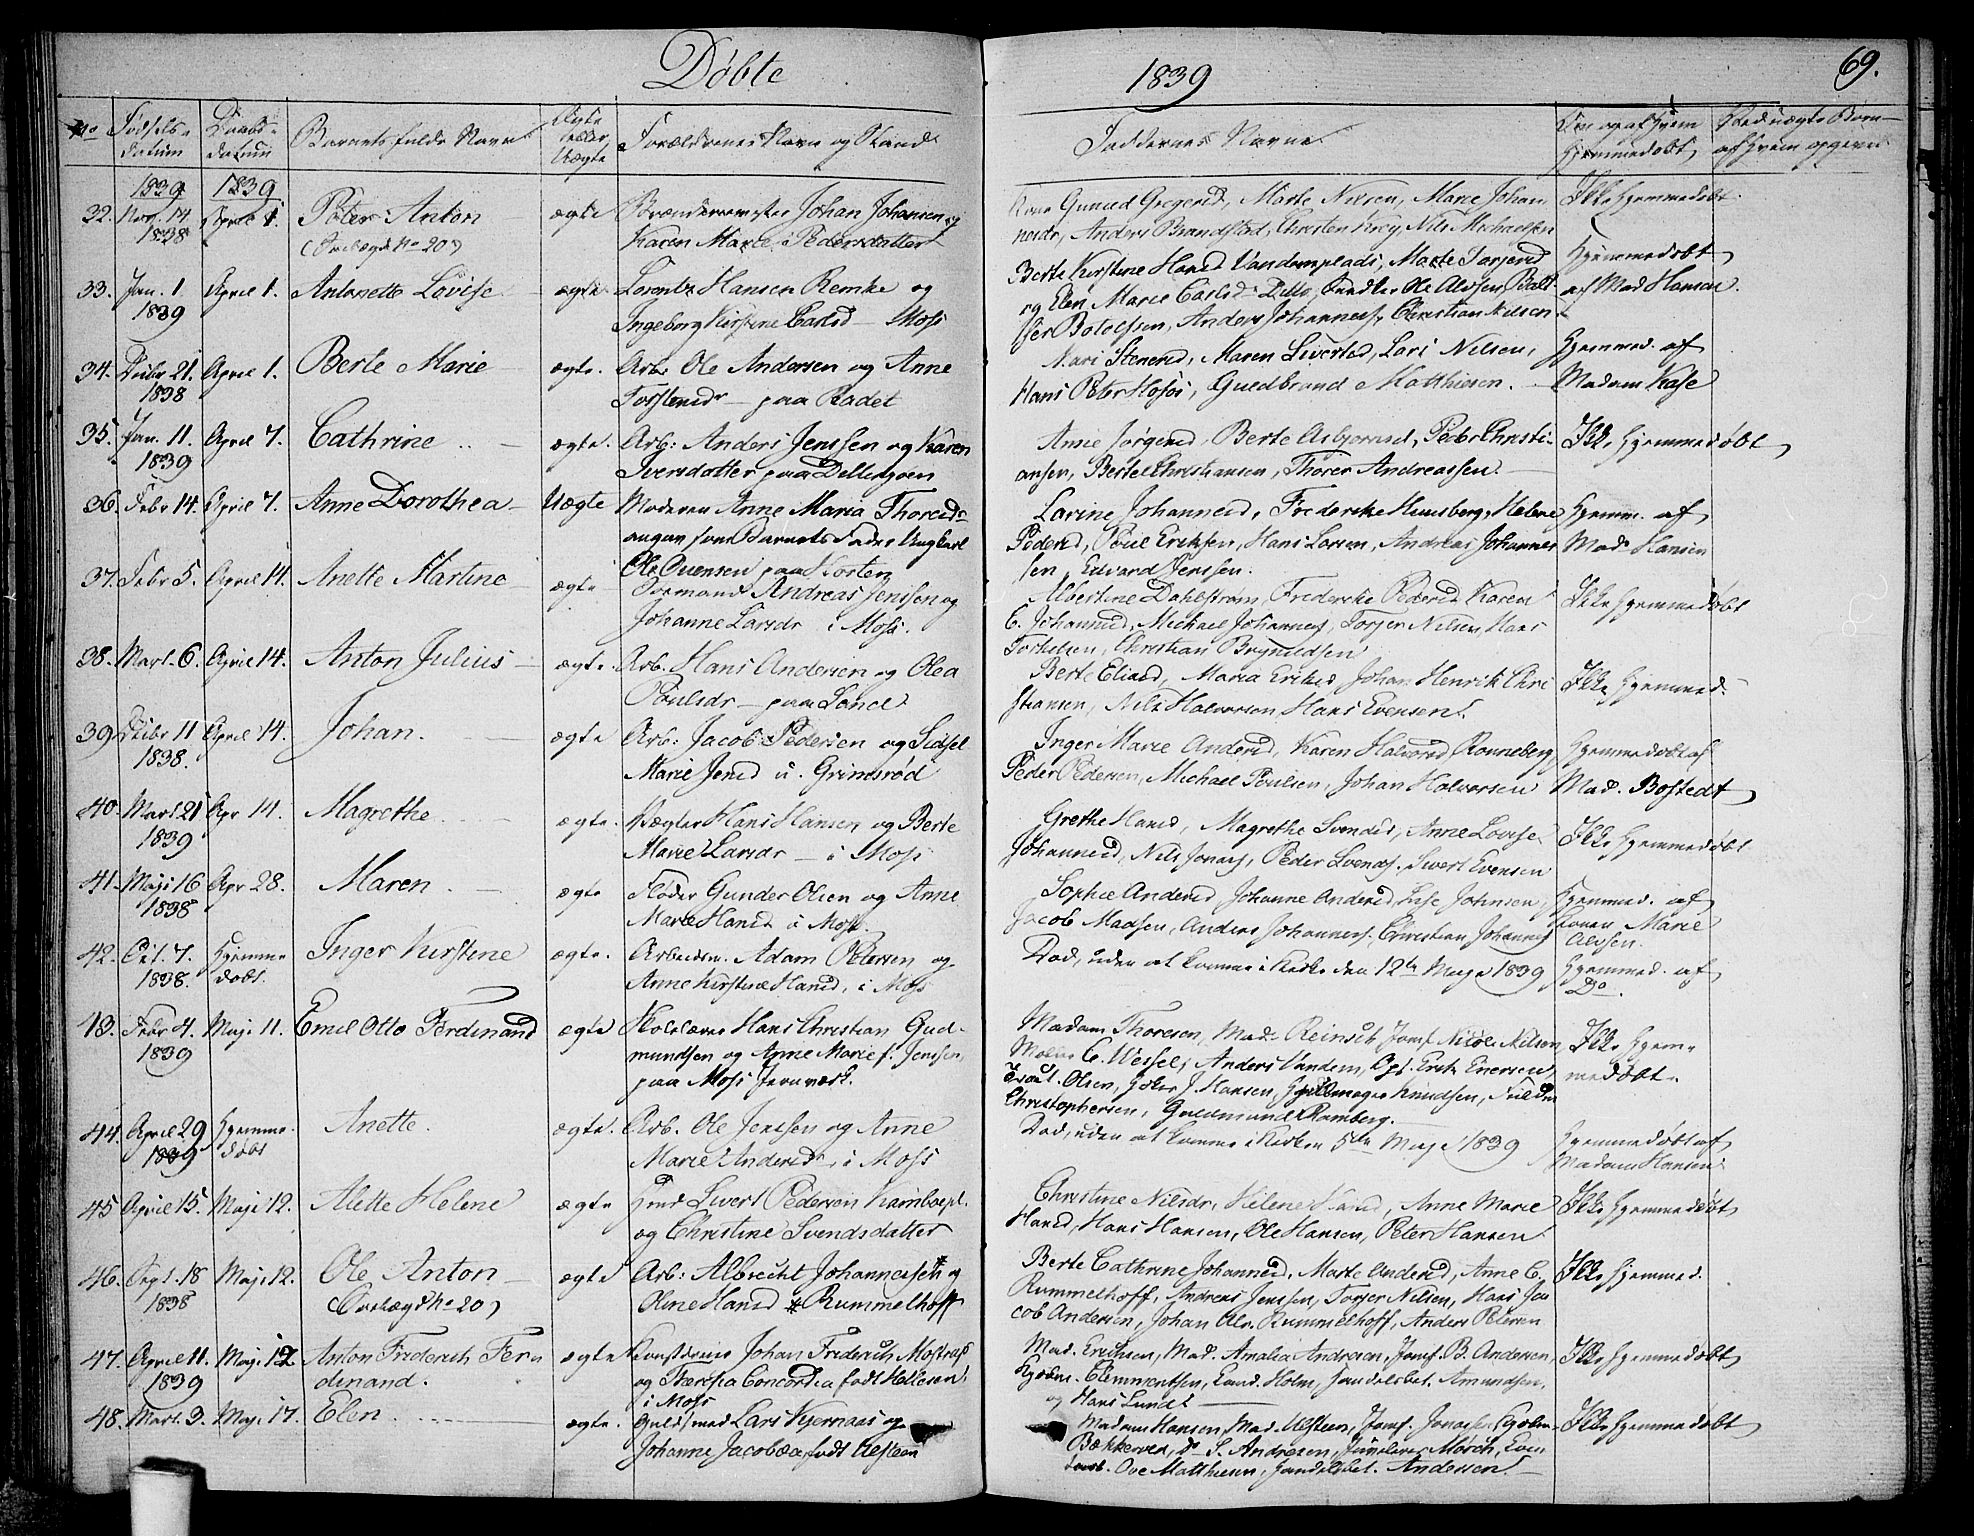 Døbte 1839 69.
No Fødsels- datum Daabs- datum Barnets fulde Navn Ægte eller Uægte Forældrenes Navn og Stand Faddernes Navne Om og af hvem hjemmedøbt Ved uægte Børn af hvem opgivet
1839 1839
32. Nov. 14 1838 April 1. Peter Anton ægte Brændevinsmester Johan Johansen og
Karen Marie Pedersdatter
Marte Nilsen, Marie Johan
nesdr, Anders Brandstad, Christen Krog Nils Michaelsen
Ikke hjemmedøbt
33. Jan. 1 1839 April 1. Antonette Lovise ægte Lorentz Hansen Remke og
Ingeborg Kirstine Carlsd — Moss
Berte Kirstine Hansd Vandemplads, Marte Torgersd
og Elen Marie Carlsd Ditto, Ole Alvsen, Balt-
ser Botolfsen, Anders Johannes, Christian Nilsen
Hjemmedøbt
af Mad Hansen.
34. Decbr 21. 1838 April 1. Berte Marie ægte. Arb. Ole Andersen og Anne
Torstensdr — paa Radet
Mari Stenersd, Maren Sivertsd, Lars Nilsen,
Hans Peter Moss, Guldbrand Matthiesen.
Hjemmed. af
Madam Kase
35. Jan. 11. 1839 April 7. Cathrine ægte. Arb: Anders Jenssen og Karen
Iversdatter paa Dillingøen
Anne Jørgensd, Berte Asbjørnsd, Peder Christi-
ansen, Bertel Christiansen, Thorer Andreassen.
Ikke hjemmedøbt
36. Febr 14. April 7. Anne Dorothea Uægte Moderen Anne Maria Thoresd
angav som Barnets Fader Ungkarl
Ole Ouensen paa Korten
Larine Johannesd, Frederike Hunsberg, Helene
Pedersd, Poul Eriksen, Hans Larsen, Andreas Johannes
sen, Edvard Jenssen.
Hjemm. af
Mad. Hansen
37. Febr 5. April 14. Anette Martine ægte Formand Andreas Jenssen og
Johanne Larsdr i Moss.
Albertine Dahlstrøm, Frederike Pedersd Karen
C. Johansd, Michael Johannes, Torger Nilsen, Hans
Torkelsen, Christian Brynildsen
Ikke hjemmedøbt
38. Mart. 6. April 14. Anton Julius ægte. Arb. Hans Andersen og Olea
Poulsdr — paa Land
Berte Eliasd, Maria Eriksd Johan Henrik Chri
stiansen, Nils Halvorsen, Hans Evensen.
Ikke hjemmed.
39 Decbr 11 1838. April 14. Johan. ægte Arb: Jacob Pedersen og Sidsel
Marie Jensd u. Grimsrød
Inger Marie Andersd, Karen Halvorsd Ronneberg
Peder Pedersen, Michael Poulsen, Johan Halvorsen
Hjemmedøbt af
Mad. Bostedt
40. Mart. 25 1839 Apr 14. Magrethe ægte. Vægter Hans Hansen og Berte
Marie Larsdr — i Moss
Grethe Hansd, Magrethe Svendsd, Anne Lovise
Johannesd, Nils Jonas, Peder Svends. Sivert Evensen
Ikke hjemmedøbt
41. Maji 16 1838 Apr 28. Maren ægte Fløder Gunder Olsen og Anne
Marie Hansd i Moss.
Sophie Andersd Johanne Andersd, Lise Johnsen,
Jacob Madsen, Anders Johannes. Christian Johannes
Hjemmed. af
Marie
Alvsen.
42. Oct. 7. 1838. Hjemme døbt. Inger Kirstine ægte. Arbeidsm. Adam Petersen og
Anne Kirstine Hansd, i Moss
Død, uden at komme i Kirke den 12te Maji 1839
Hjemmed. af
Do.
43. Febr 4. 1839 Maji 11. Emil Otto Ferdinand ægte Skolelærer Hans Christian Gud-
mundsen og Anne Marie f. Jenssen,
paa Moss Jernværk.
Madam Thoresen, Mad. Reinsch Jomf. Nilsen,
C. Wessel, Anders Vandem, Erik Enersen,
Olsen, J. Hansen, Knudsen,
Christophersen, Guldmund Ramberg.
Ikke hjem-
medøbt.
44. April 29 1839 Hjemme- døbt Anette. ægte. Arb. Ole Jenssen og Anne
Marie Andersdr i Moss
Død, uden at komme i Kirken 5te Maji 1839
Hjemmedøbt af
Madam Hansen
45 April 15. Maji 12. Alette Helene ægte Hmd Sivert Pedersen Kambopl.
og Christine Svendsdatter
Christine Nilsdr, Helene Hansd, Anne Marie
Hansd, Hans Hansen, Ole Hansen, Peter Hansen
Ikke hjemmedøbt
46. Sept. 18 1838 Maji 12. Ole Anton ægte Arb: Albrecht Johannessen* og
Oline Hansd * Rummelhoff
Berte Cathrine Johannesd. Marte Andersd, Anne C.
Rummelhoff, Andreas Jenssen, Torger Nilsen, Hans Ja
cob Andersen, Johan Alv. Rummelhoff, Anders Petersen
Ikke hjemmed.
47. April 11. 1839 Maji 12 Anton Frederich Fer- dinand. ægte Johan Frederich
og Theresia Concordia født Hellesen
i Moss
Mad. Erichsen, Mad. Amalia Andresen, Jomf. B. Andersen,
Clemmentsen, Cand. Holm, Handelsbet. Amundsen,
og Hans Lundt
Ikke hjemmedøbt
48. Mart. 9. Maji 17. Elen ægte. Guldsmed Lars Kjernaas og
Johanne Jacobæa født Ulsteen
Madam Hansen, Mad. Ulsteen, Jomf. Jonassen
Bækkevold, do S. Andresen, Juveleer Mørch,
Ove Matthiesen, Handelsbet. Andersen.
Ikke hjemmedøbt